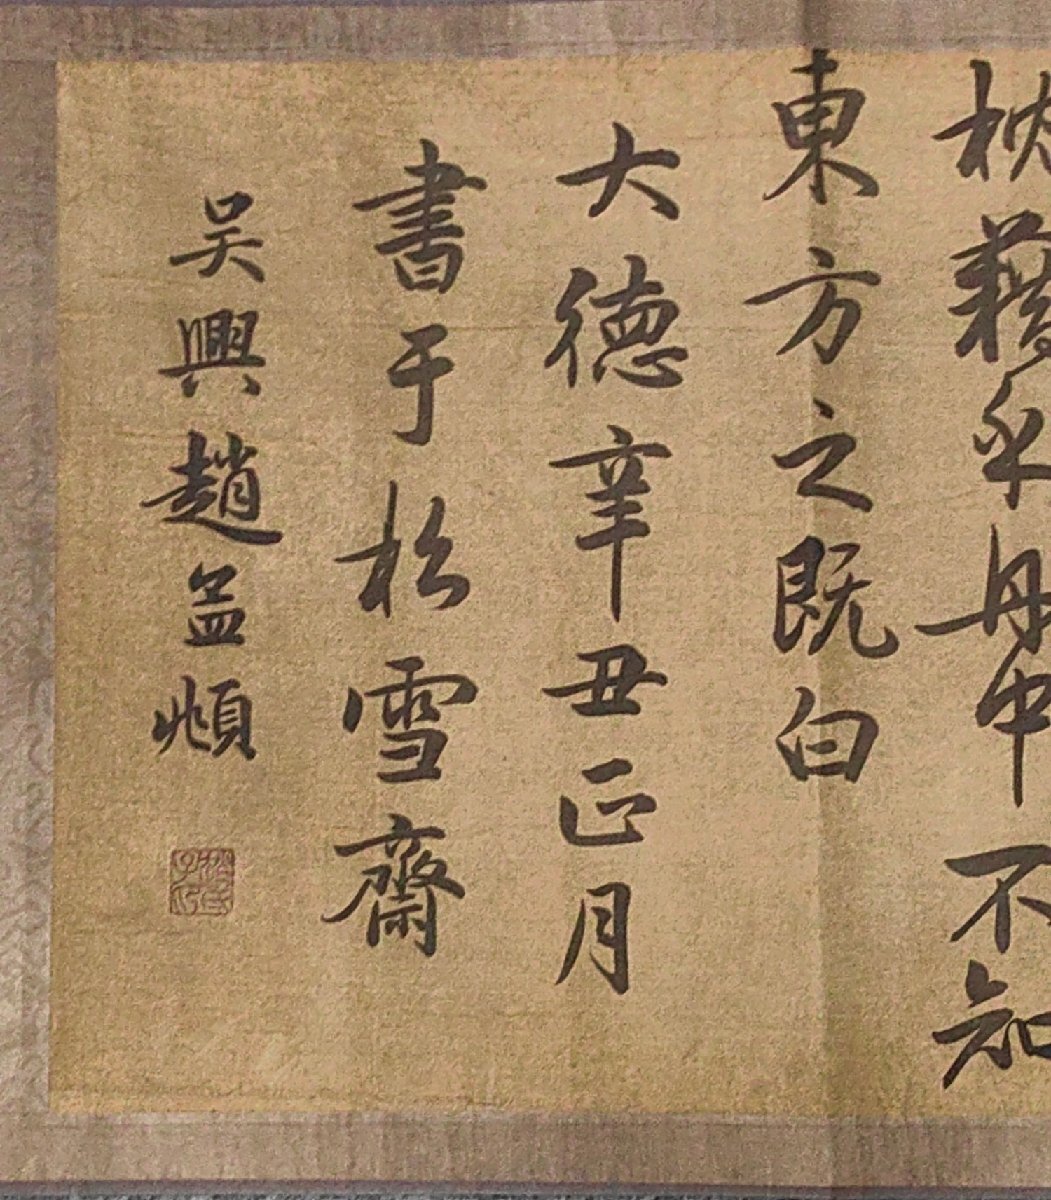 枕藉乎舟中不知
東方之既白
大德辛丑正月
書于松雪齋
吳興趙孟頫
趙氏子昂